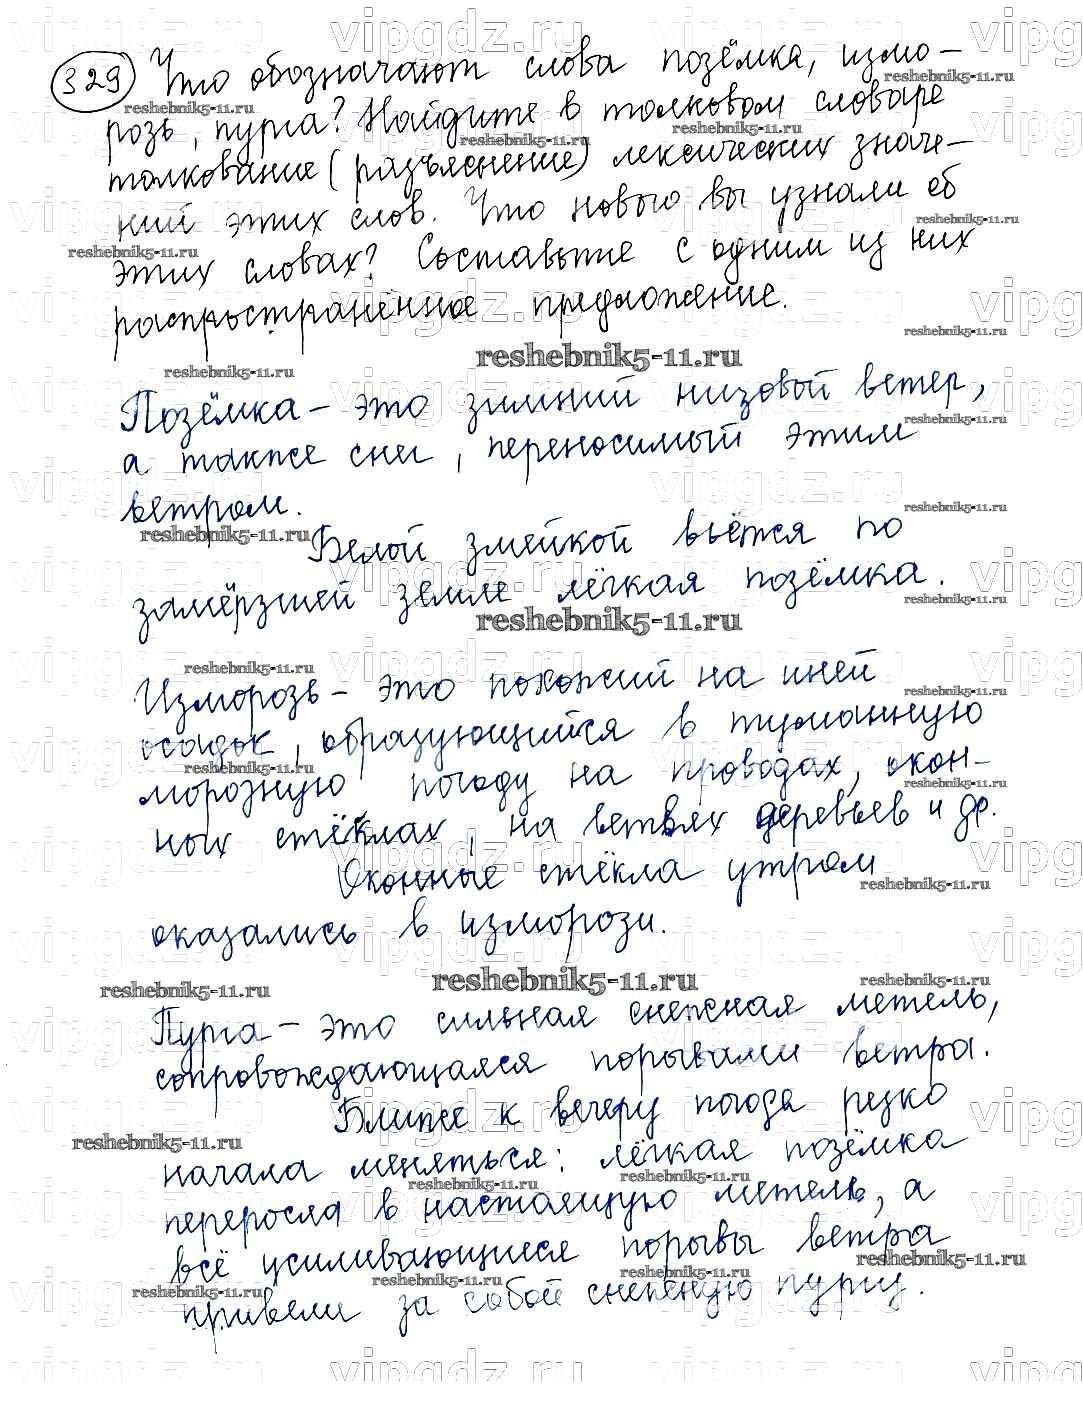 329 Что обозначают слова позёмка, измо-
розь, пурга? Найдите в толковом словаре
толкование (разъяснение) лексических значе-
ний этих слов. Что нового вы узнали об
этих словах? Составьте с одним из них
распространённое предложение.
Позёмка – это зимний низовой ветер,
а также снег, переносимый этим
ветром.
Белой змейкой вьётся по
замёрзшей земле лёгкая позёмка.
Изморозь – это похожий на иней
осадок, образующийся в туманную
морозную погоду на проводах, окон-
ных стёклах, на ветвях деревьев и др.
Оконные стёкла утром
оказались в изморози.
Пурга – это сильная снежная метель,
сопровождающаяся порывами ветра.
Ближе к вечеру погода резко
начала меняться: лёгкая позёмка
переросла в настоящую метель, а
всё усиливающиеся порывы ветра
привели за собой снежную пургу.
vipgdz.ru
reshebnik5-11.ru